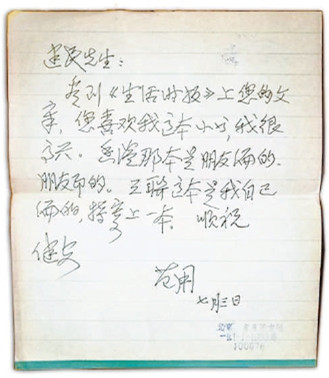 建民先生：
看到《生活时报》上您的文
章，您喜欢我这本小书，我很
高兴。香港那本是朋友编的、
朋友印的。三联这本是我自己
编的，指寄上一本。顺祝
健安
范用
七月三日
100078